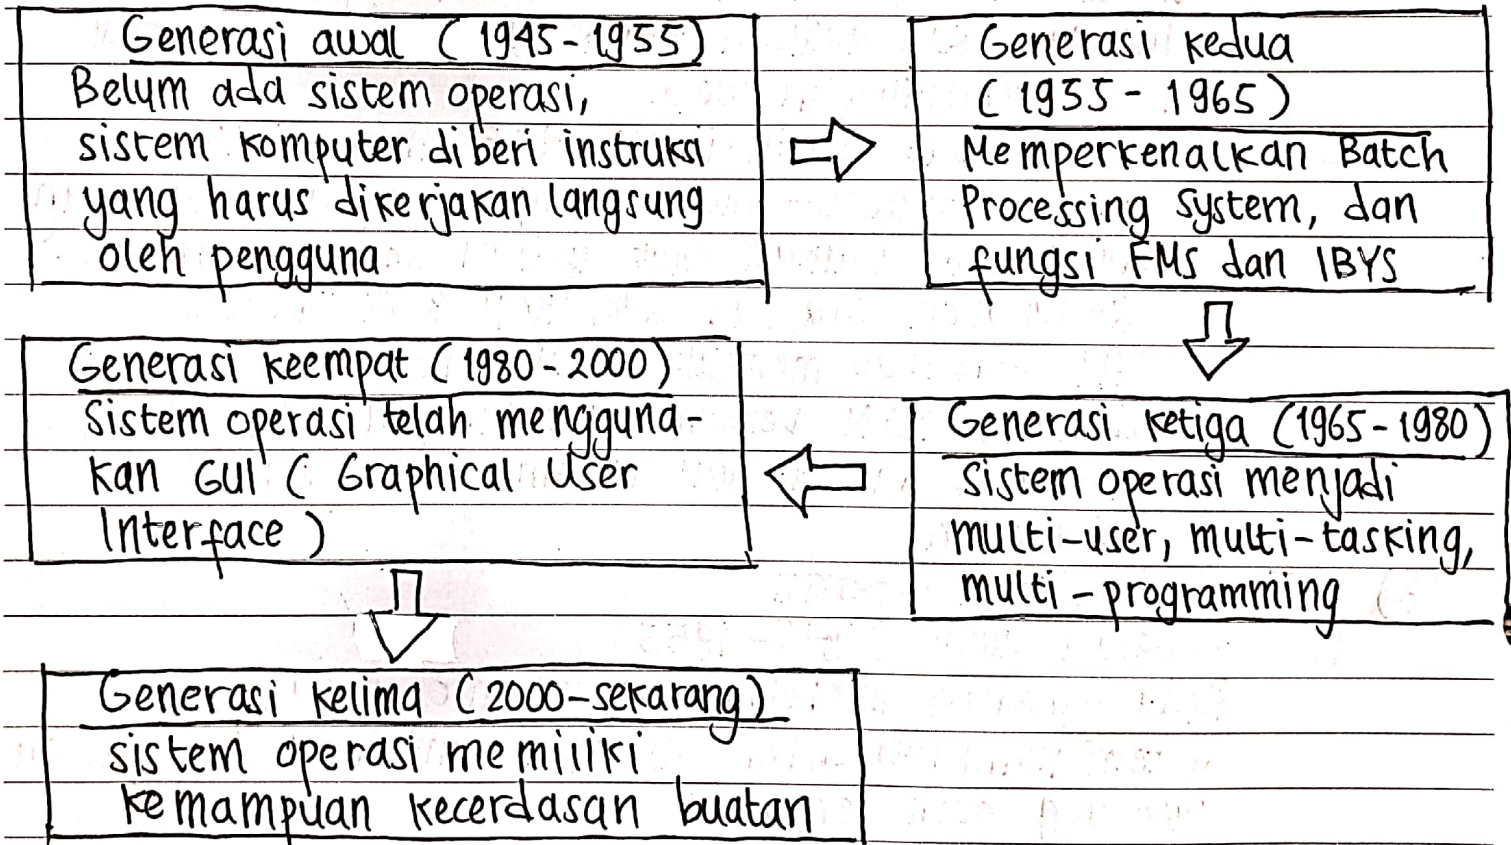 Generasi awal (1945-1955)
Belum ada sistem operasi,
sistem komputer diberi instruksi
yang harus dikerjakan langsung
oleh pengguna
Generasi kedua
(1955 - 1965)
Memperkenalkan Batch
Processing System, dan
fungsi FMS dan IBYS
Generasi ketiga (1965-1980)
Sistem operasi menjadi
multi-user, multi-tasking,
multi-programming
Generasi keempat (1980-2000)
Sistem operasi telah mengguna-
kan GUI (Graphical User
Interface)
Generasi kelima (2000-sekarang)
sistem operasi memiliki
kemampuan kecerdasan buatan